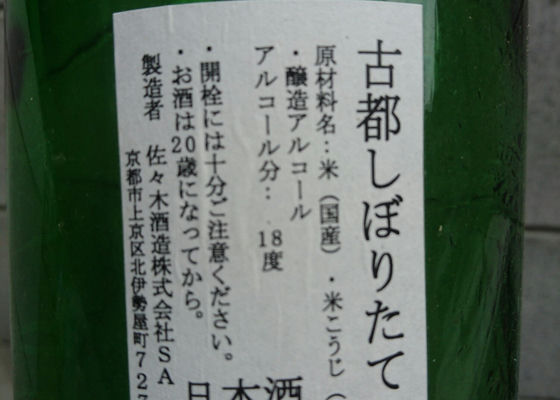 古都しぼりたて
原材料名：米（国産）・米こうじ（
・醸造アルコール
アルコール分： 18度
・開栓には十分ご注意ください。
・お酒は20歳になってから。
製造者 佐々木酒造株式会社SA
京都市上京区北伊勢屋町727
日本酒